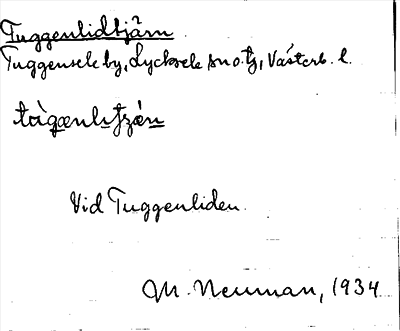 Tuggenlidtjärn
Tuggensele by, Lycksele sn o. tg, Västerb. l.
Vid Tuggenliden.
M. Neuman, 1934